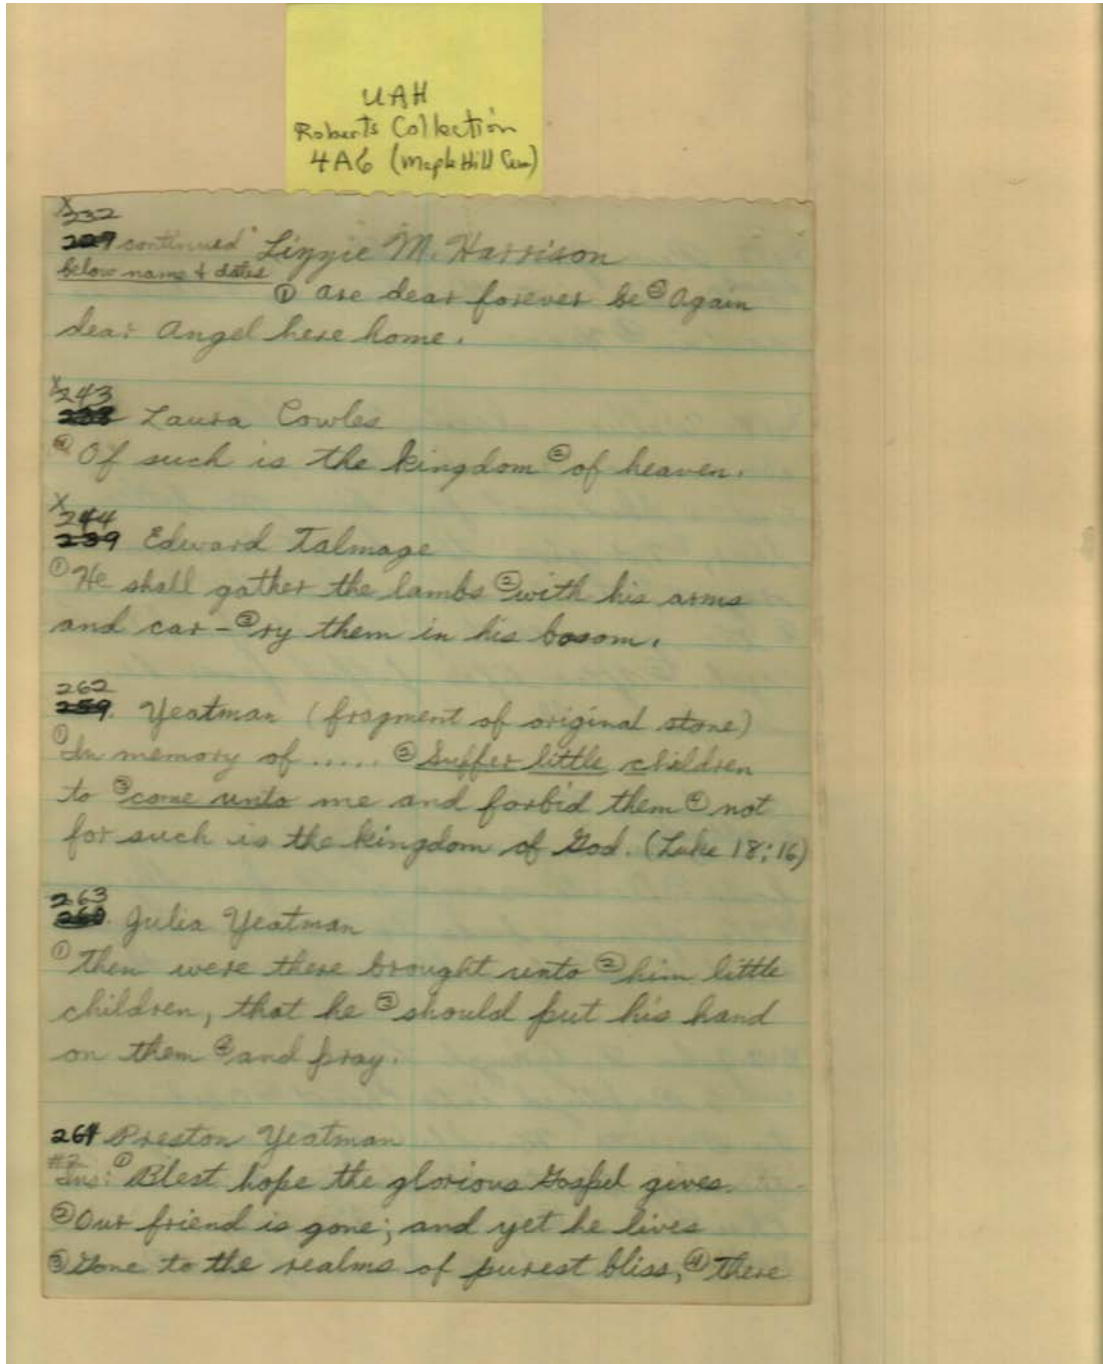 UAH
Roberts Collection
4A6 (Maple Hill Cem)
X
232
229 continued Lizzie M. Harrison
below name & dates
① are dear forever be ② Again
dear Angel here home.
X
243
238 Laura Cowles
① Of such is the kingdom ② of heaven.
X
244
239 Edward Talmage
① He shall gather the lambs ② with his arms
and car- ③ ry them in his bosom.
262
259. Yeatman (fragment of original stone)
① In memory of ..... ② Suffer little children
to ③ come unto me and forbid them ④ not
for such is the kingdom of God. (Luke 18:16)
263
260. Julia Yeatman
① Then were there brought unto ② him little
children, that he ③ should put his hand
on them ④ and pray.
264 Preston Yeatman
#2
Ins: ① Blest hope the glorious Gospel gives.
② Our friend is gone; and yet he lives
③ Gone to the realms of purest bliss, ④ There